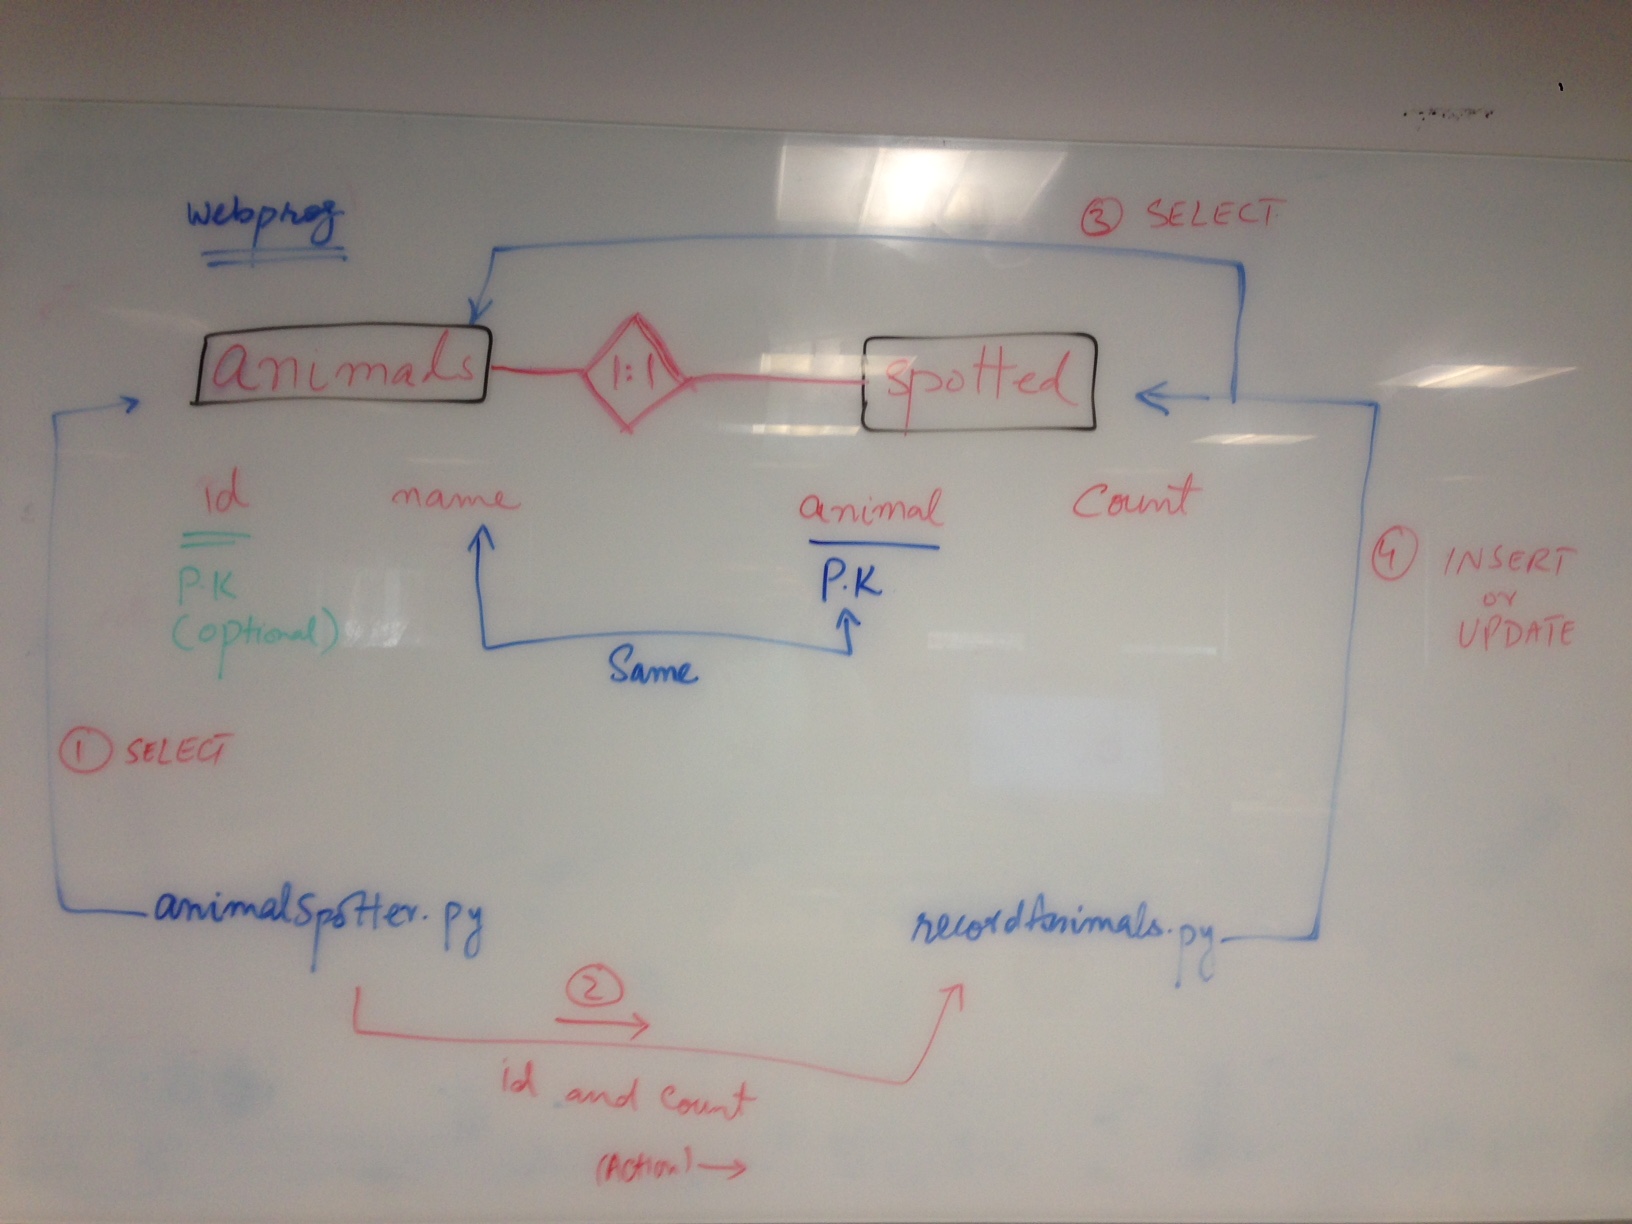 webprog
③ SELECT
animals
1:1
spotted
id
name
animal
Count
P.K
(optional)
P.K
Same
④ INSERT
or
UPDATE
① SELECT
animalspotter.py
recordAnimals.py
②
id and count
(Action) →